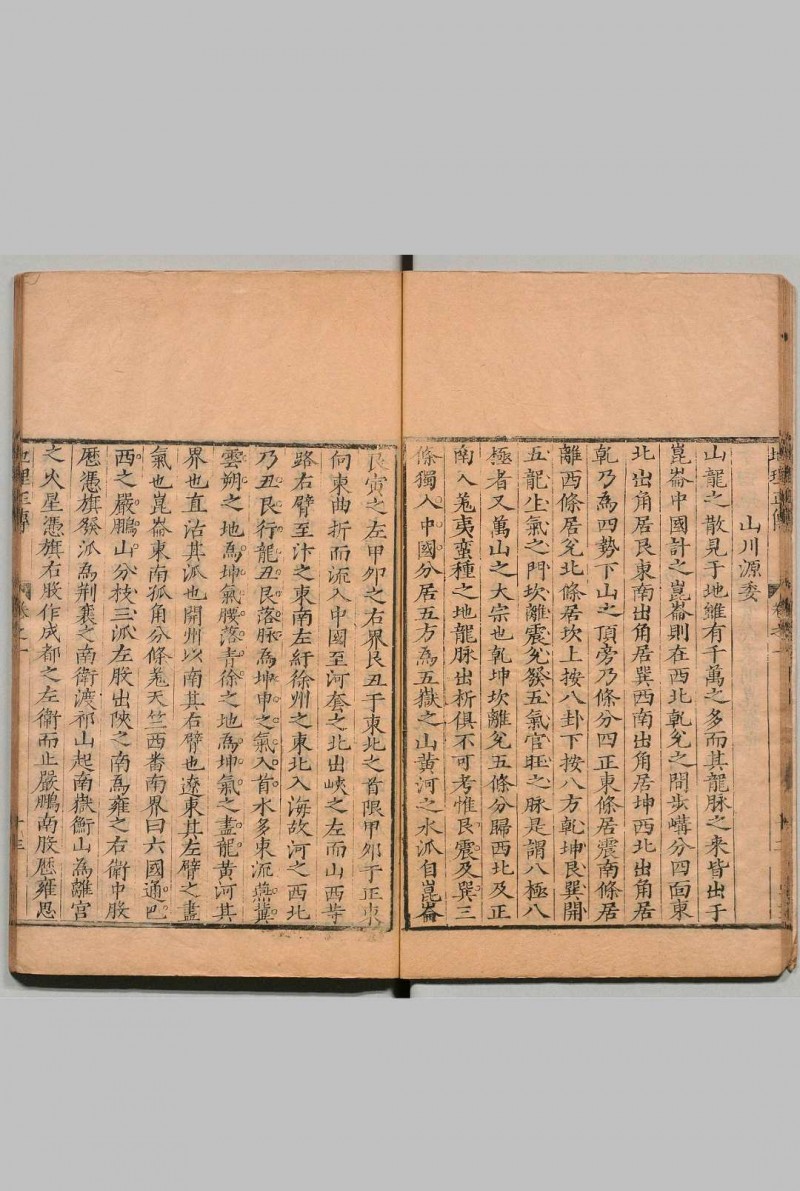 山川源委
山龍之散見于地雖有千萬之多而其龍脉之来皆出于
崑崙中國計之崑崙則在西北乾兌之間步嶙分四面東
北出角居艮東南出角居巽西南出角居坤西北出角居
乾乃為四勢下山之頂旁乃條分四正東條居震南條居
離西條居兌北條居坎上按八卦下按八方乾坤艮巽開
五龍出氣之門坎離震兌發五氣官旺之脉是謂八極八
極者又萬山之大宗也乾坤坎離兌五條分歸西北及正
南入羗夷蛮種之地龍脉出折俱不可考惟艮震及巽三
條獨入中國分居五方為五嶽之山黃河之水派自崑崙
艮寅之左甲夘之右界艮丑于東北之首限甲夘于正東
向東曲折而流入中國至河套之北出峽之左而山西等
路右臂至汴之東南左紆徐州之東北入海故河之西北
乃丑艮行龍丑艮落脉為坤申之氣入首水多東流燕冀
雲朔之地為坤氣腰落青徐之地為坤氣之盡龍黃河其
界也直沽其派也開州以南其右臂也遼東其左臂之盡
氣也崑崙東南孤角分條羗天竺西畨南界曰六國通巴
西之嚴鵬山分枝三派左股出陝之南為雍之右衛中股
歷憑旗發派為荆襄之南衛渡祁山起南嶽衡山為離宮
之火星憑旗右股作成都之左衛而止嚴鵬南股歷雍思
地理正傳
卷之一
十三